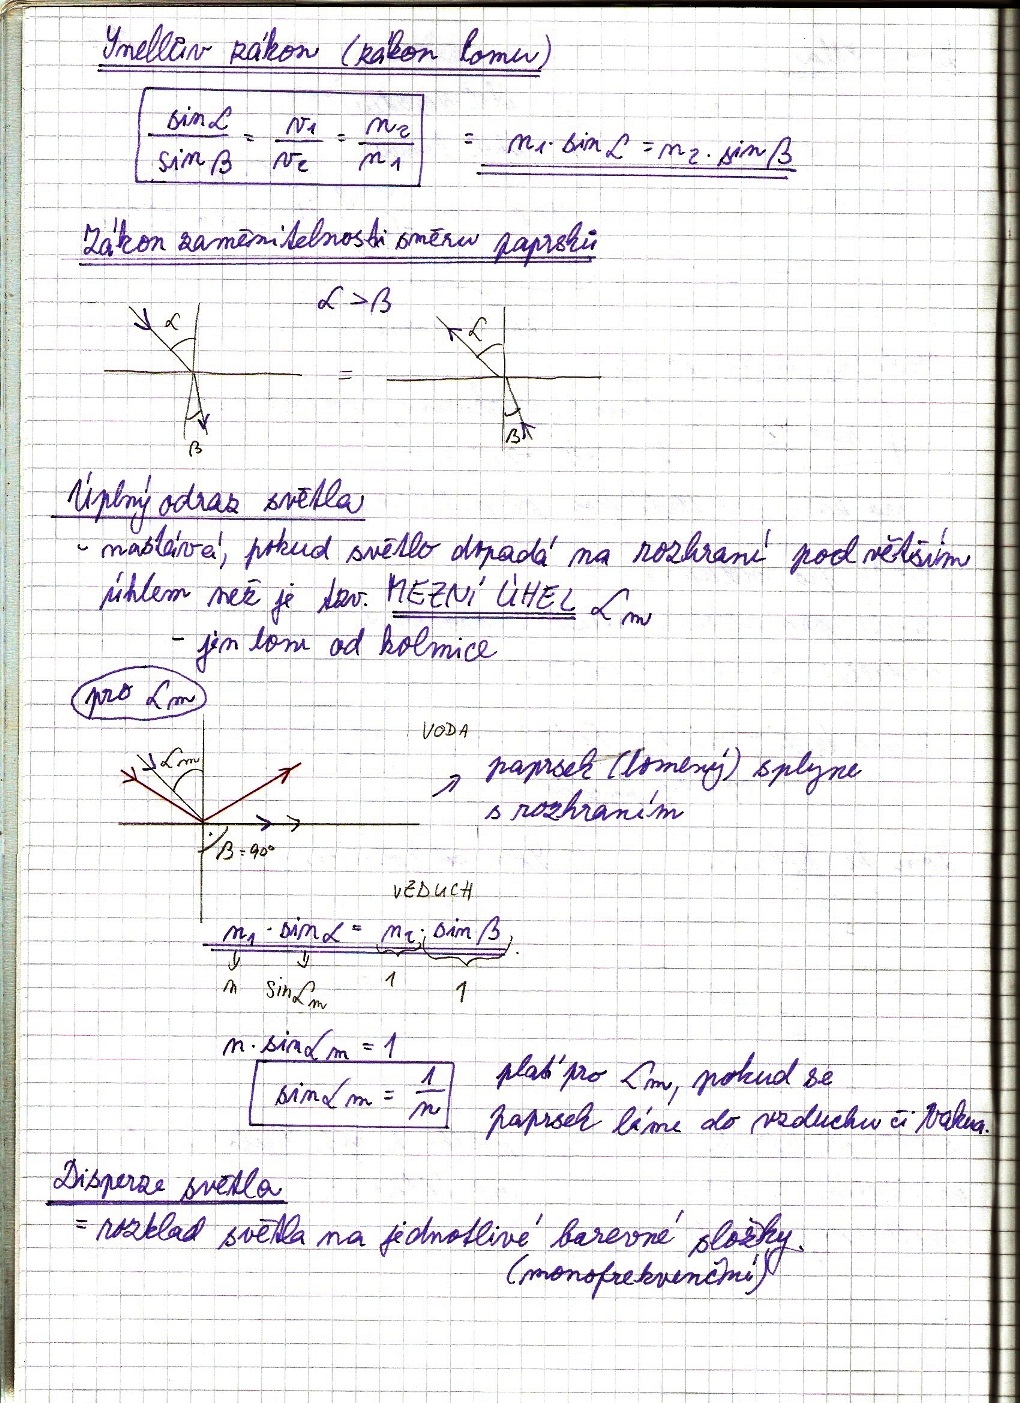 Snellův zákon (zákon lomu)
sin α / sin β = v1 / v2 = n2 / n1 = n1 · sin α = n2 · sin β
Zákon zaměnitelnosti směru paprsků
α > β
α α
=
β β
Úplný odraz světla
- nastává, pokud světlo dopadá na rozhraní pod větším
úhlem než je tzv. MEZNÍ ÚHEL αm
- jen lom od kolmice
pro αm
VODA
αm
paprsek (lomený) splyne
s rozhraním
β = 90°
VZDUCH
n1 · sin α = n2 · sin β
n sin αm 1 1
n · sin αm = 1
sin αm = 1/n
platí pro αm, pokud se
paprsek láme do vzduchu či vakua.
Disperze světla
= rozklad světla na jednotlivé barevné složky.
(monofrekvenční)